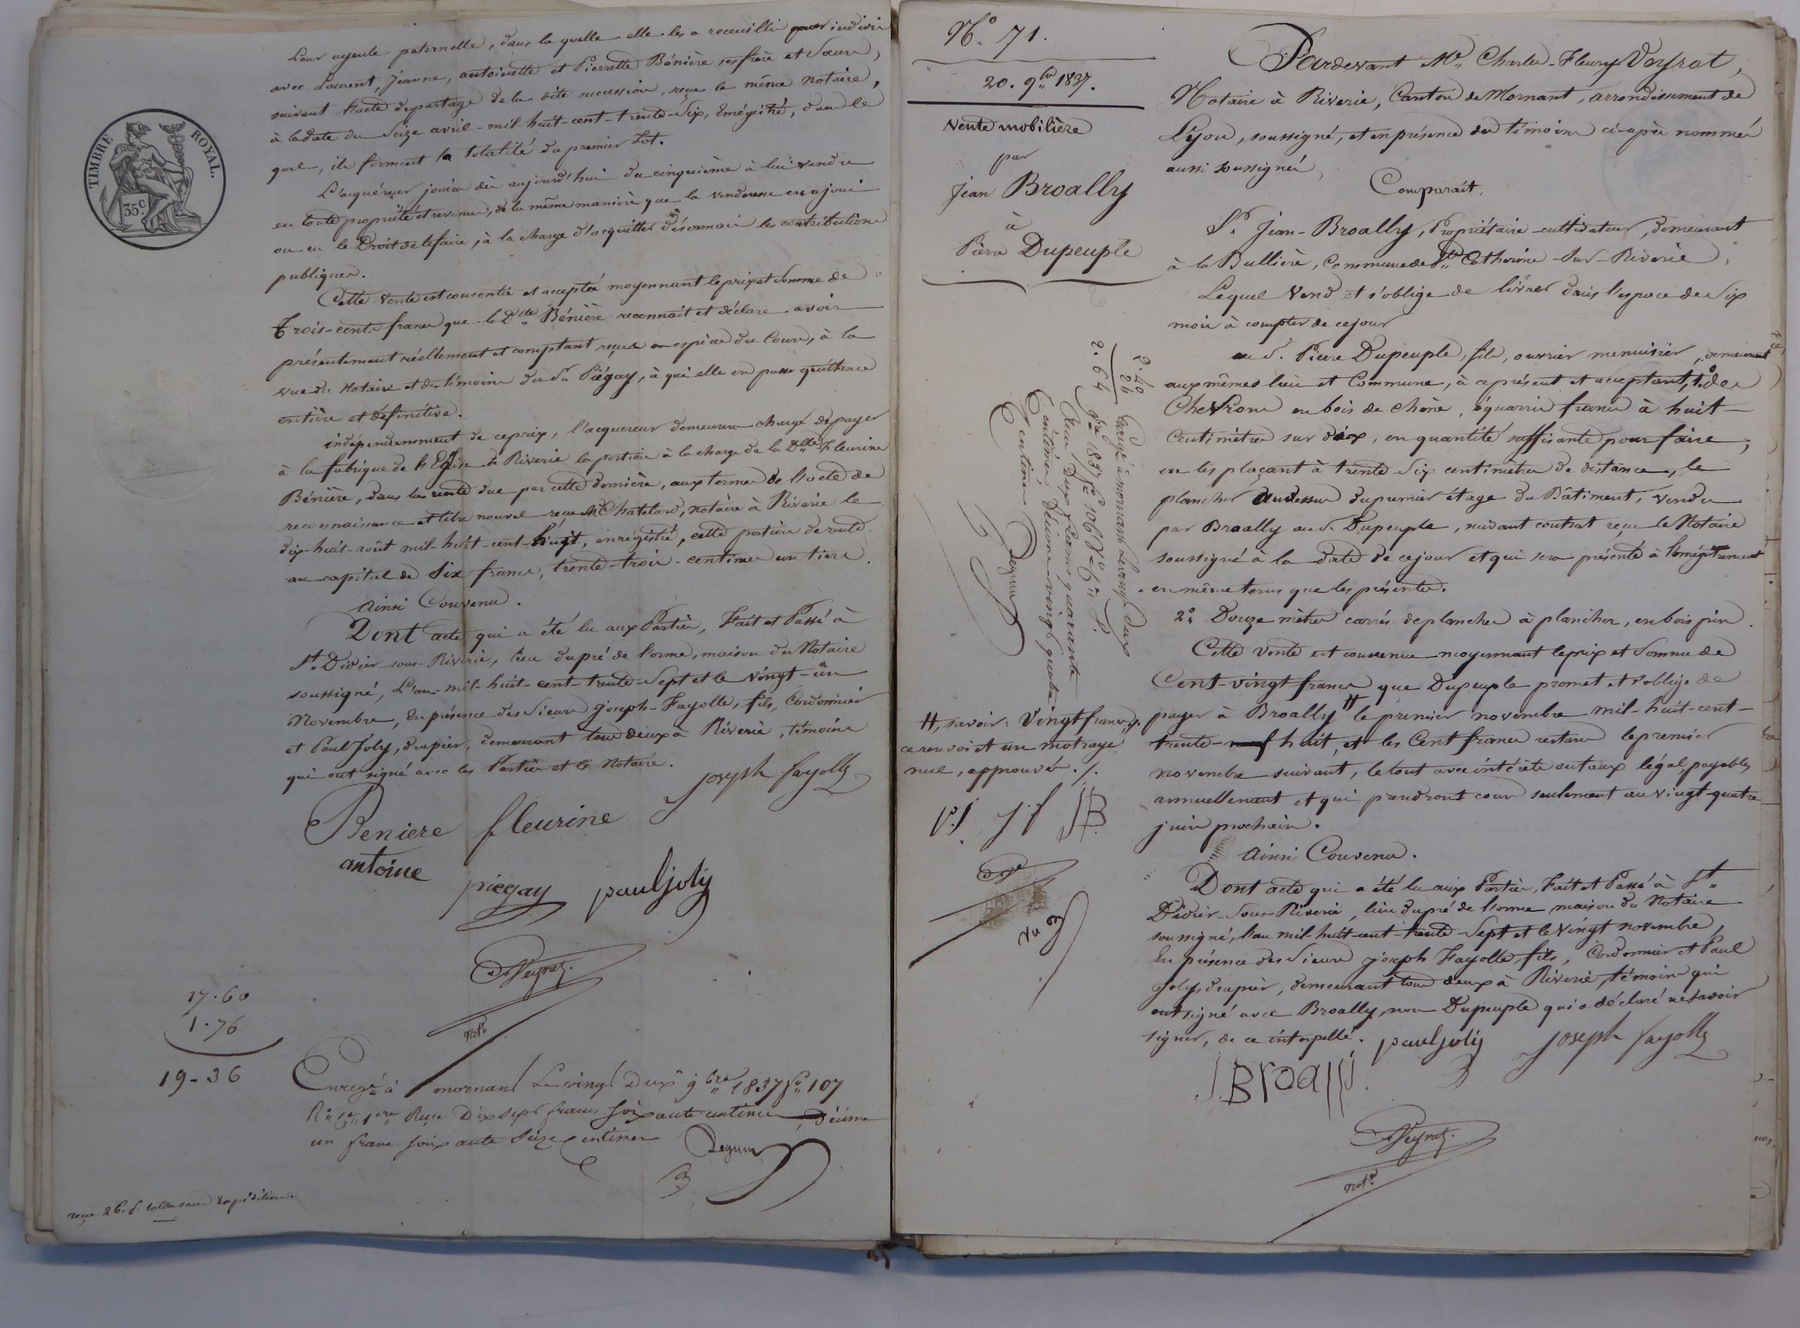 TIMBRE ROYAL.
35.c
Leur ayeule paternelle, dans la quelle elle les a recueillis pour indivis
avec Laurent, Jeanne, antoinette et Pierrette Bénière ses frère et sœurs,
suivant l'acte de partage de la dite succession, reçu le même notaire,
à la date du Seize avril mil huit-cent-trente-six, enrégistré, dans le
quel, ils forment la totalité du premier Lot.
L'acquéreur jouira dès aujourd'hui du cinquième à lui vendu
en toute propriété et revenus, de la même manière que la venderesse en a joui
ou eu le Droit de le faire, à la charge d'acquitter désormais les contributions
publiques.
Cette vente est consentie et acceptée moyennant le prix et Somme de
Trois-cents francs que la Dlle Bénière reconnaît et déclare avoir
présentement réellement et comptant reçus en espèces du Cours, à la
vue du notaire et des témoins du Sr. Piégay, à qui elle en passe quittance
entière et définitive.
indépendamment de ce prix, l'acquéreur demeurera chargé de payer
à la fabrique de l'Eglise de Riverie la portion à la charge de la Dlle Fleurine
Bénière, dans la rente due par cette dernière, aux termes de l'acte de
reconnaissance et titre nouvel reçu Me Chatelard, notaire à Riverie le
dix-huit août mil huit-cent-huit, enregistré, cette portion de rente
au capital de Six francs, trente-trois-centimes un tiers.
Ainsi Convenu.
Dont acte qui a été lu aux Parties, Fait et Passé à
St. Didier-sous-Riverie, lieu du pré de l'orme, maison du Notaire
soussigné, L'an-mil-huit-cent-trente-Sept et le vingt-un
Novembre, En présence des Sieurs Joseph-Fayolle, fils, Cordonnier
et Paul Joly, drapier, demeurant tous deux à Riverie, témoins
qui ont signé avec les Parties et le Notaire.
joseph fayolle
Beniere fleurine
antoine
piegay pauljoly
Veyrat
Not.re
17.60
1.76
19-36
Enregé à mornant Le vingt Deux 9bre 1837 fo. 107
Reçu Dix sept francs soixante centimes Décime
un franc soixante Seize centimes
No. 71.
20. 9bre 1837.
Vente mobilière
par
Jean Broally
à
Pierre Dupeuple
2.40
24
2.64
Enregé à mornant Le vingt Deux
9bre 1837 fo. 106
Reçu Deux francs quarante
Centimes Décime vingt quatre
Centimes
Pardevant Me. Charles-Fleury Veyrat,
Notaire à Riverie, Canton de Mornant, arrondissement de
Lyon, soussigné, et en présence des témoins ci-après nommés
aussi soussignés,
Comparaît,
Sr. Jean-Broally, Propriétaire-cultivateur, demeurant
à la Bullière, Commune de Ste. Catherine-Sur-Riverie,
Lequel Vend et s'oblige de livrer dans l'espace de six
mois à compter de ce jour
au Sr. Pierre Dupeuple, fils, ouvrier menuisier, demeurant
aux mêmes lieu et Commune, à ce présent et acceptant, 1o. des
Chevrons en bois de chêne, équarris francs à huit-
Centimètres sur dix, en quantité suffisante pour faire,
en les plaçant à trente-Six centimètres de distance, le
plancher Au dessus du premier étage du Bâtiment, vendu
par Broally au Sr. Dupeuple, suivant contrat reçu le Notaire
soussigné à la date de ce jour et qui sera présenté à l'enregistrement
en même tems que les présentes.
2o. Douze mètres carrés de planches à plancher, en bois pin.
Cette vente est convenue moyennant le prix et Somme de
Cent-vingt francs que Dupeuple promet et s'oblige de
payer à Broally # le premier novembre mil-huit-cent-
trente-neuf huit, et les Cent francs restans le premier
novembre suivant, le tout avec intérêts au taux légal, payables
annuellement et qui prendront cours seulement au vingt-quatre
juin prochain.
#, savoir: Vingt francs
ce renvoi et un mot rayé
nul, approuvés ./.
p.j j.f JB
Ainsi Convenu.
Dont acte qui a été lu aux Parties, Fait et Passé à St.
Didier-Sous-Riverie, lieu du pré de l'orme maison du Notaire
soussigné, l'an mil-huit-cent-trente-Sept et le Vingt novembre,
En présence des Sieurs Joseph Fayolle, fils, Cordonnier et Paul
Joly, drapier, demeurant tous deux à Riverie, témoins qui
ont signé avec Broally, non Dupeuple qui a déclaré ne Savoir
signer, de ce interpellé.
pauljoly joseph fayolle
J.Broally
Veyrat
not.re